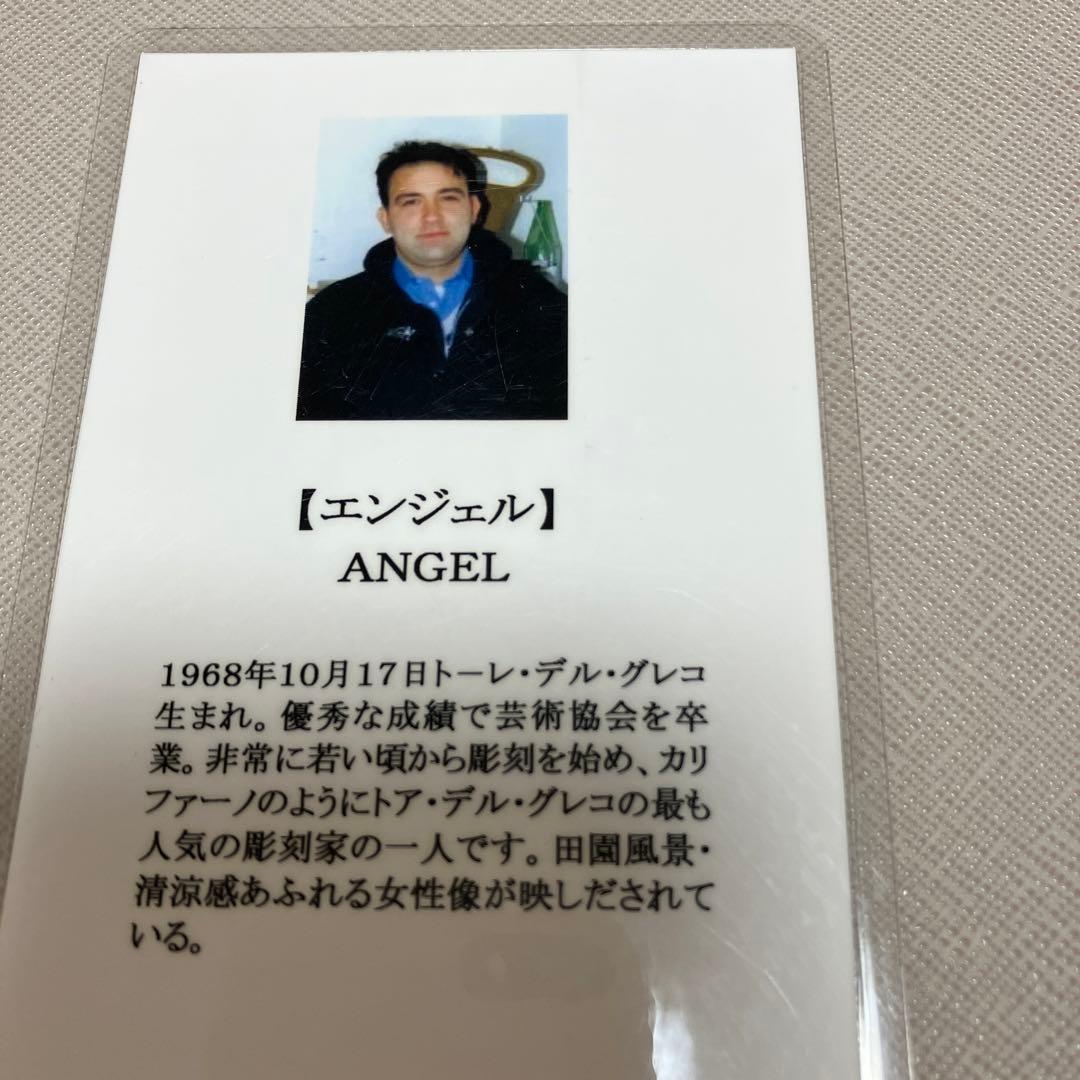 【エンジェル】
ANGEL
1968年10月17日トーレ・デル・グレコ
生まれ。優秀な成績で芸術協会を卒
業。非常に若い頃から彫刻を始め、カリ
ファーノのようにトア・デル・グレコの最も
人気の彫刻家の一人です。田園風景・
清涼感あふれる女性像が映しだされて
いる。